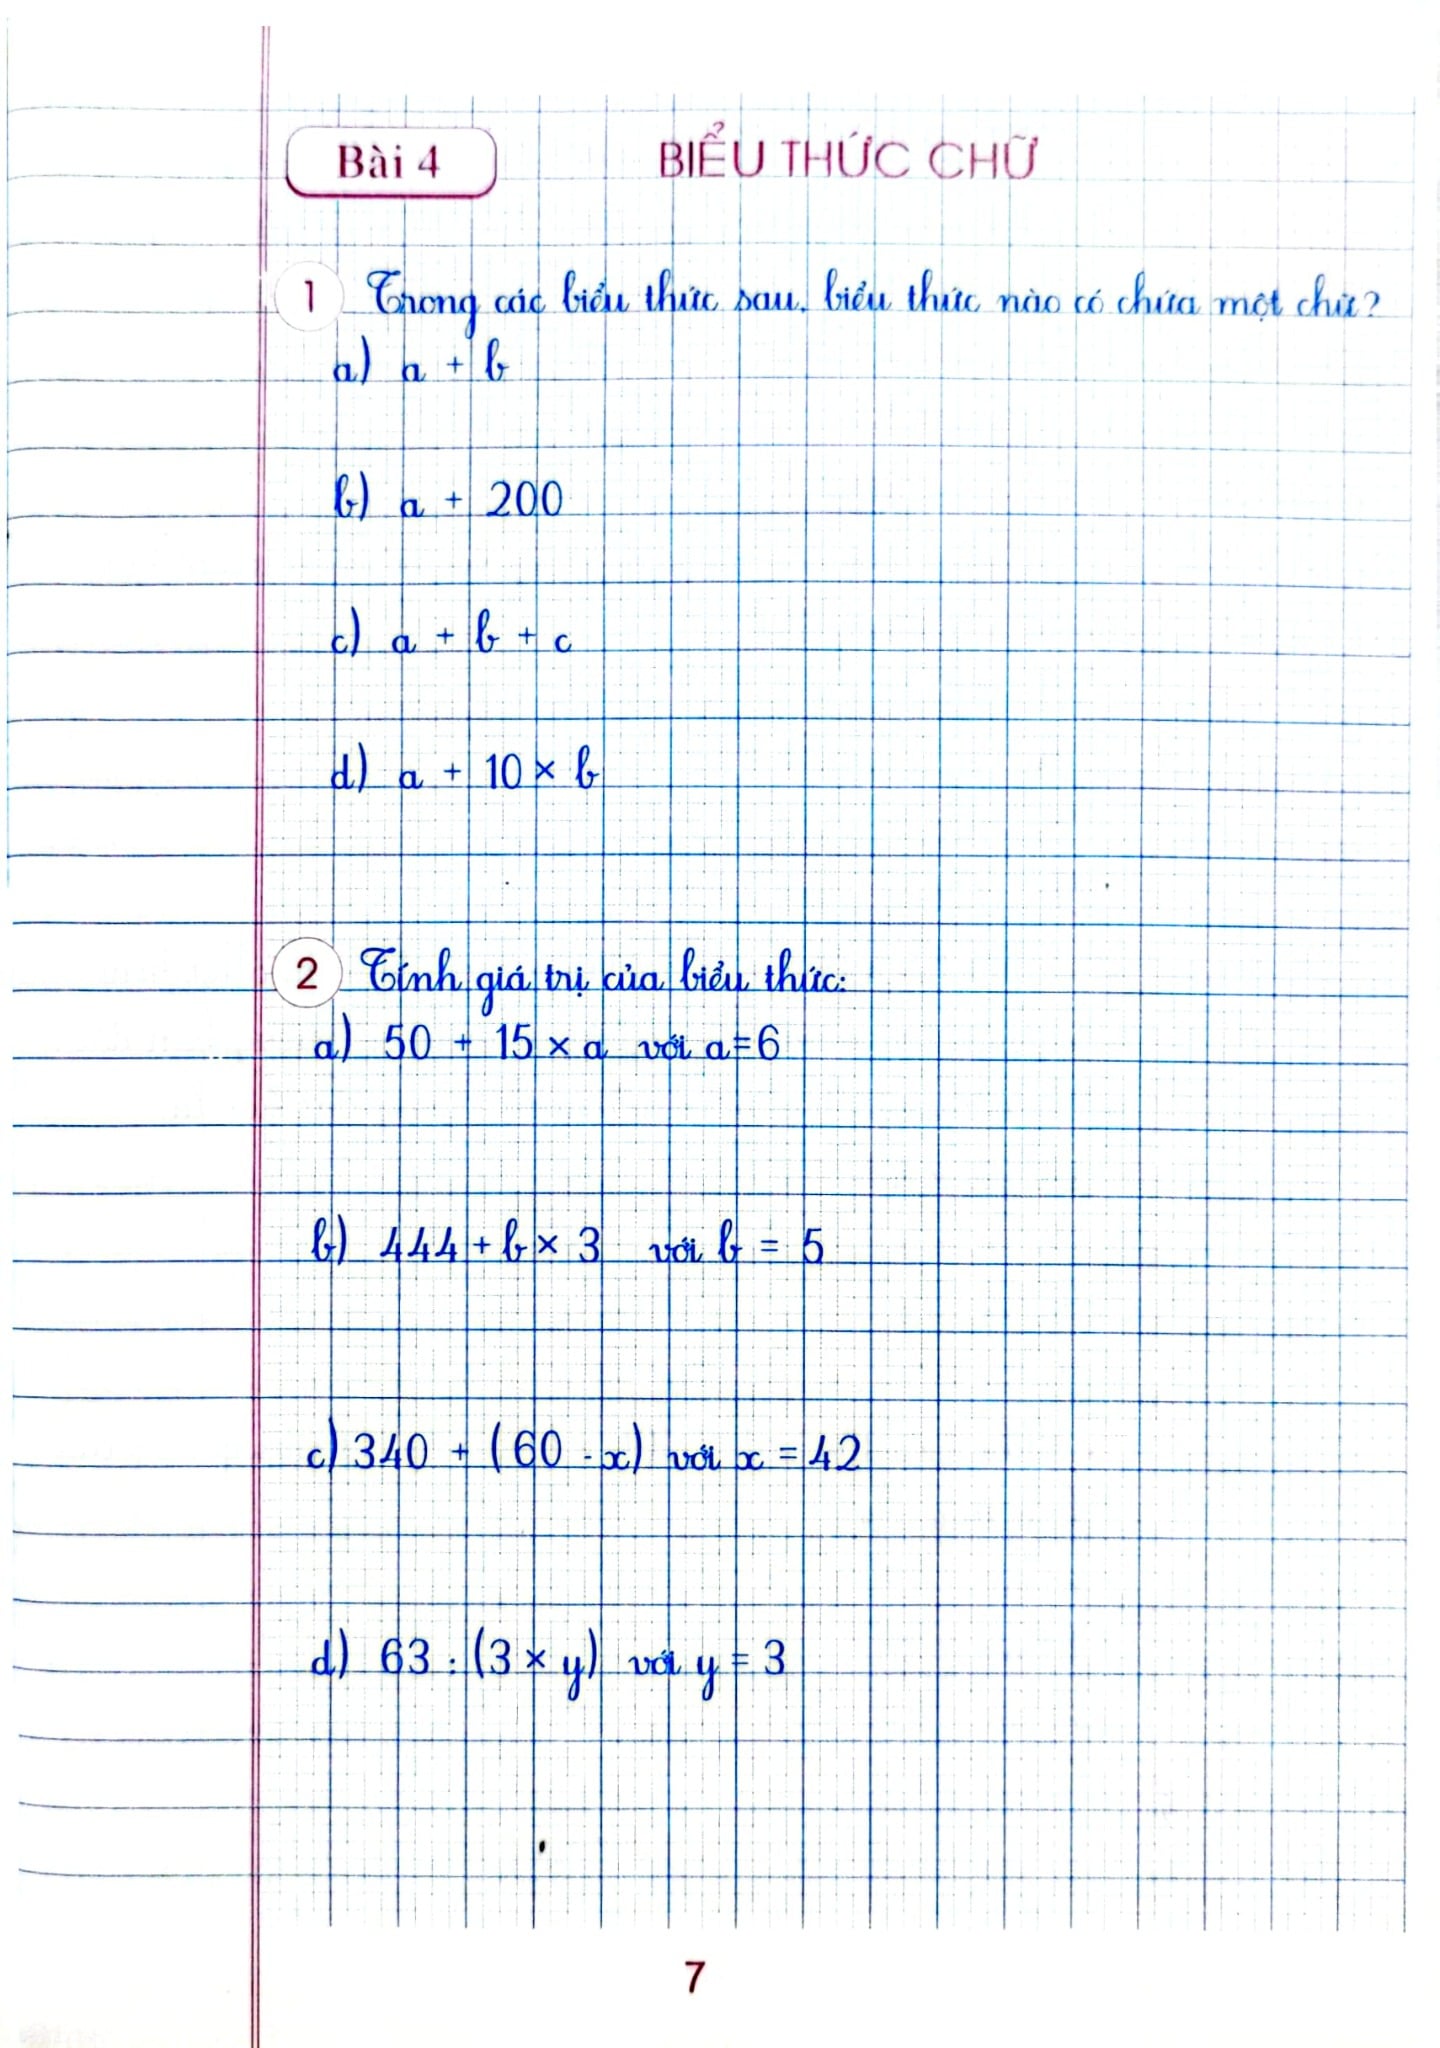 Bài 4
BIỂU THỨC CHỮ
1 Trong các biểu thức sau, biểu thức nào có chứa một chữ?
a) a + b
b) a + 200
c) a + b + c
d) a + 10 × b
2 Tính giá trị của biểu thức:
a) 50 + 15 × a với a=6
b) 444 + b × 3 với b = 5
c) 340 + (60 - x) với x = 42
d) 63 : (3 × y) với y = 3
7